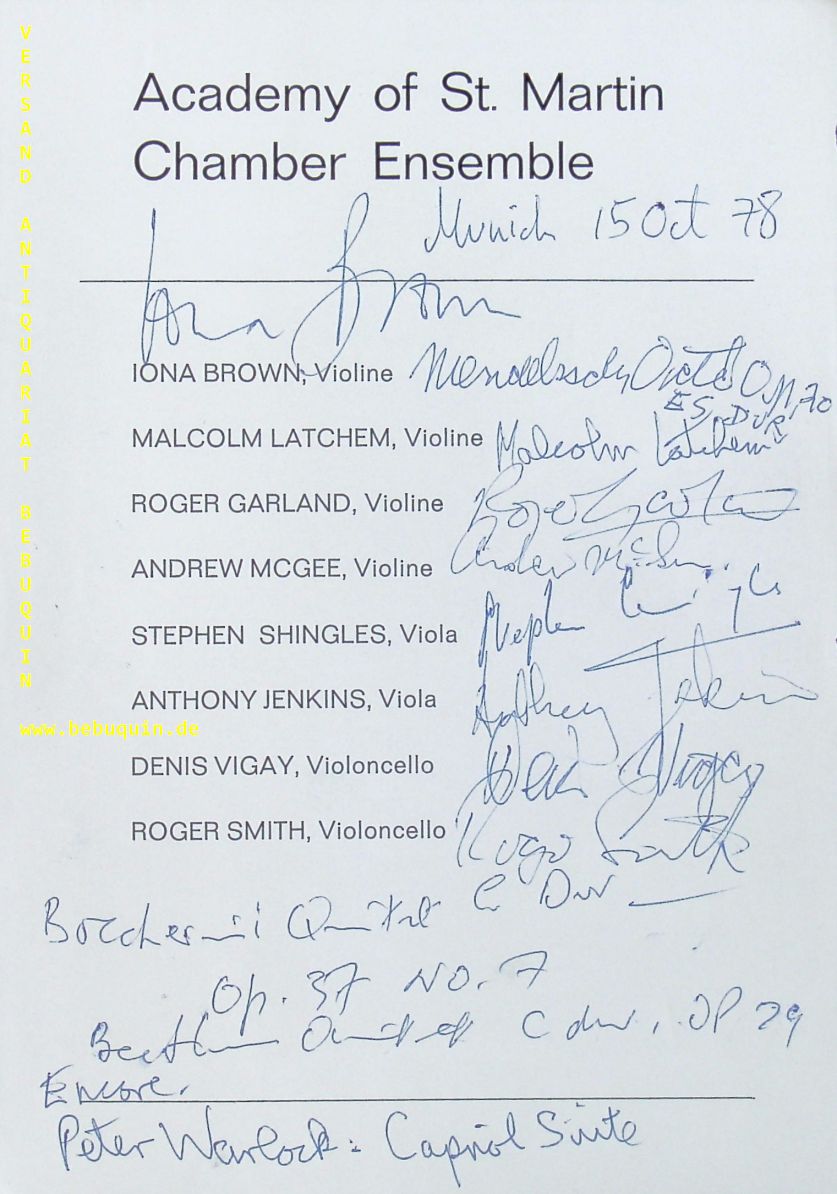 VERSAND ANTIQUARIAT BEBUQUIN
www.bebuquin.de
Academy of St. Martin
Chamber Ensemble
Munich 15 Oct 78
Iona Brown
IONA BROWN, Violine
Mendelssohn Octet Op. 20
ES DUR
MALCOLM LATCHEM, Violine Malcolm Latchem
ROGER GARLAND, Violine Roger Garland
ANDREW MCGEE, Violine Andrew McGee
STEPHEN SHINGLES, Viola Stephen Shingles
ANTHONY JENKINS, Viola Anthony Jenkins
DENIS VIGAY, Violoncello Denis Vigay
ROGER SMITH, Violoncello Roger Smith
Boccherini Quintet C Dur
Op. 37 No. 7
Beethoven Quintet C dur, OP 29
Encore.
Peter Warlock: Capriol Suite